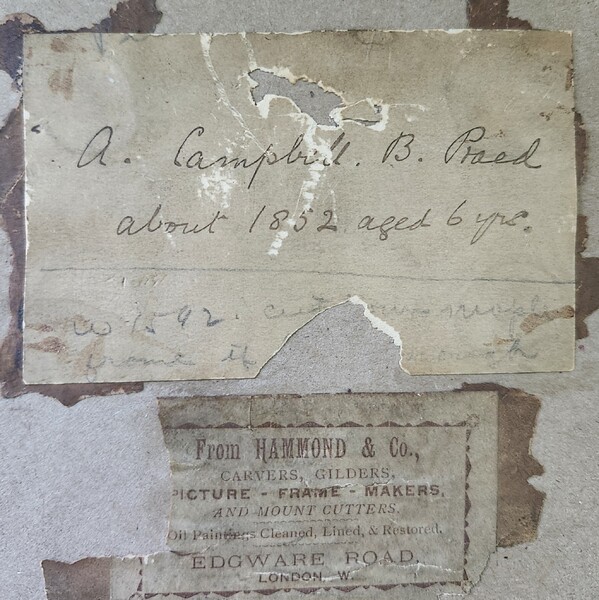 A. Campbell. B. Praed
about 1852 aged 6 yrs.
1592.
frame if
From HAMMOND & Co.,
CARVERS, GILDERS,
PICTURE - FRAME - MAKERS,
AND MOUNT CUTTERS.
Oil Paintings Cleaned, Lined, & Restored.
EDGWARE ROAD,
LONDON, W.